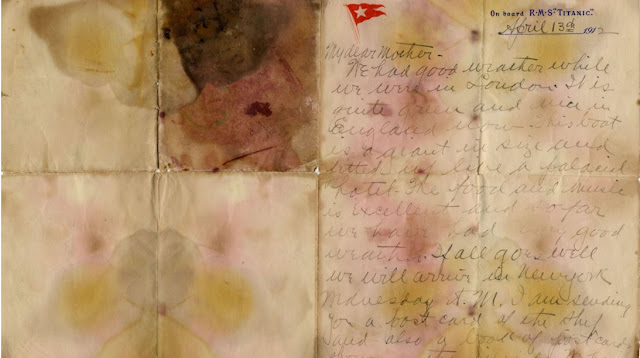 On board R·M·S "TITANIC".
April 13th 1912
My dear Mother-
We had good weather while
we were in London. It is
quite green and nice in
England now. This boat
is a giant in size and
fitted up like a palacial
hotel. The food and music
is excellent and so far
we have had very good
weather. If all goes well
we will arrive in New York
Wednesday A.M. I am sending
you a post card of the ship
and also a book of postcards